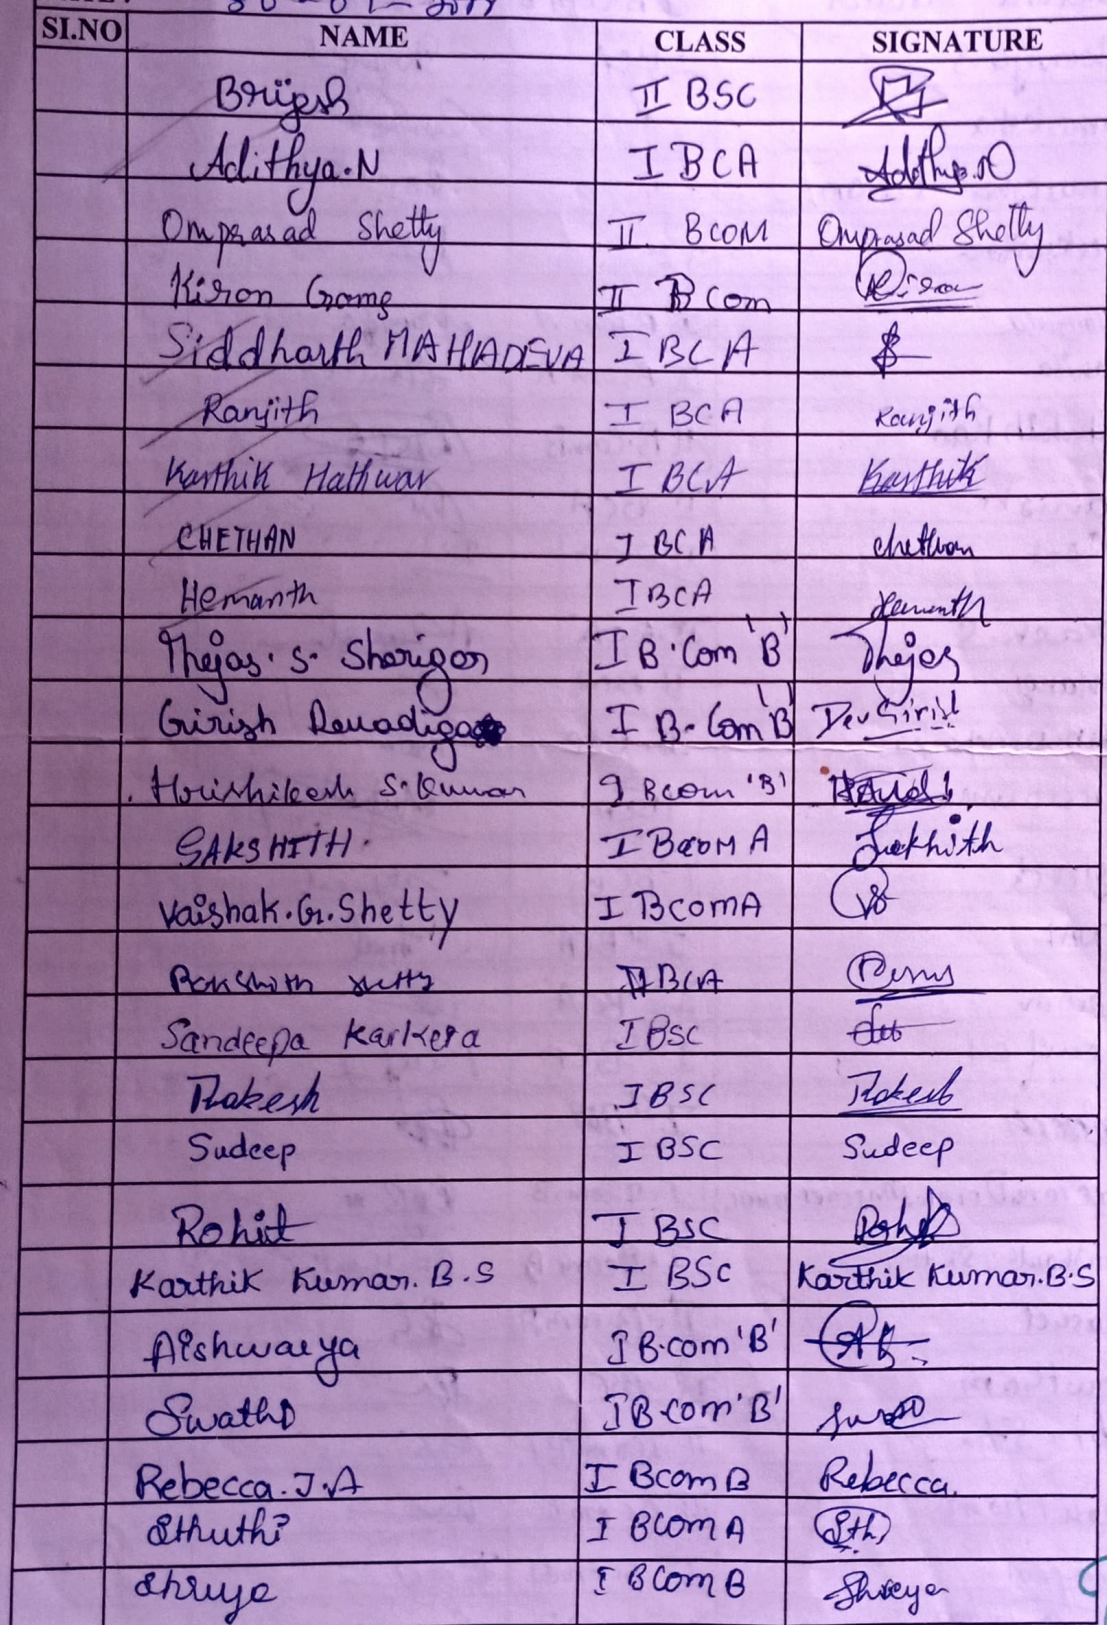 SI.NO NAME CLASS SIGNATURE
Brijesh II BSC
Adithya.N I BCA Adithya.N
Omprasad Shetty II. BCOM Omprasad Shetty
Kiron Gomg II B com Kiron
Siddharth MAHADEVA I BCA
Ranjith I BCA Ranjith
Karthik Hathwar I BCA Karthik
CHETHAN I BCA chethan
Hemanth I BCA Hemanth
Thejas. S. Sherigar I B.Com 'B' Thejas
Girish Devadiga I B.Com 'B'
Hrishikesh S.Kumar I Bcom 'B'
SAKSHITH. I BCOM A Sakhith
Vaishak.G.Shetty I BcomA VS
II BCA
Sandeepa Karkera I BSC
Rakesh I BSC Rakesh
Sudeep I BSC Sudeep
Rohit I BSC Rohit
Karthik Kumar.B.S I BSC Karthik Kumar.B.S
Aishwarya I B.com 'B'
Swathi I B.com 'B'
Rebecca.J.A I Bcom B Rebecca.
Sthuthi I BCOM A Sth
Shreya I BCom B Shreya